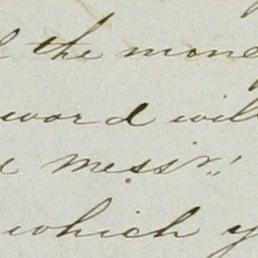 the mone
word will
Messr"
which y